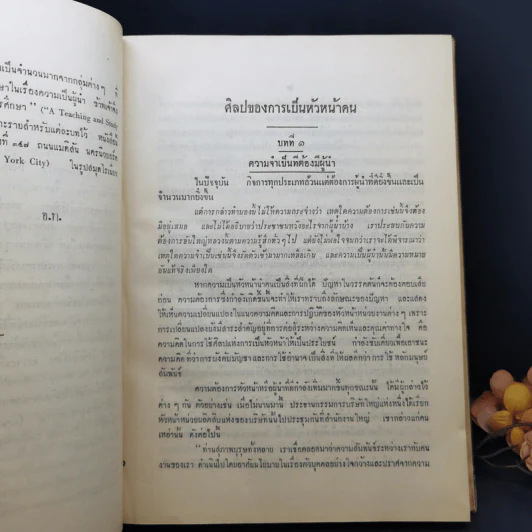 เป็นจำนวนมากจากกลุ่มต่างๆ ที่
ษาในเรื่องความเป็นผู้นำ
รศึกษา" ("A Teaching and Study
าะรายสำหรับแต่ละบทไว้ หนังสือนี้
ที่ ๓๔๗ ถนนแมดิสัน นครนิวยอร์ค
York City) ในรูปสมุดโรเนียว
อ.ท.
ศิลปของการเป็นหัวหน้าคน
บทที่ ๑
ความจำเป็นที่ต้องมีผู้นำ
ในปัจจุบัน กิจการทุกประเภทล้วนแต่ต้องการผู้นำที่ดียิ่งขึ้นและเป็น
จำนวนมากยิ่งขึ้น
แต่การกล่าวทำนองนี้ไม่ให้ความกระจ่างว่า เหตุใดความต้องการเช่นนี้จึงต้อง
มีอยู่เสมอ และไม่ได้อธิบายว่าประชาชนหวังอะไรจากผู้นำบ้าง เราประสบกับความ
ต้องการอันใหญ่หลวงตามความรู้สึกทั่วๆ ไป แต่ยังไม่พอใจจนกว่าเราจะได้พิจารณาว่า
เหตุใดความจำเป็นเช่นนี้จึงรัดตัวเข้ามามากเหลือเกิน และความเป็นผู้นำนั้นมีความหมาย
อันแท้จริงเพียงใด
หากความเป็นหัวหน้าคนเป็นสิ่งที่ฝึกได้ ปัญหาในวรรคต้นก็จะต้องตอบเสีย
ก่อน ความต้องการซึ่งกำลังเกิดขึ้นนี้จะทำให้เราทราบถึงลักษณะของปัญหา และแสดง
ให้เห็นความเปลี่ยนแปลงในแนวความคิดและการปฏิบัติของหัวหน้าหน่วยงานต่างๆ เพราะ
การเปลี่ยนแปลงอันมีสาระสำคัญอยู่ที่การต่อสู้ระหว่างความคิดเห็นและคุณค่าทางใจ คือ
ความคิดในการใช้ศิลปแห่งการเป็นหัวหน้าให้เป็นประโยชน์ กำลังขับเคี่ยวเพื่อเอาชนะ
ความคิดที่ว่าการบังคับบัญชาและการใช้อำนาจเป็นสิ่งที่ให้ผลดีกว่าการใช้หลักมนุษย์
สัมพันธ์
ความต้องการหัวหน้าหรือผู้นำที่ดีกำลังเพิ่มมากขึ้นทุกขณะนั้น ได้มีผู้กล่าวไว้
ต่างๆ กัน ตัวอย่างเช่น เมื่อไม่นานมานี้ ประธานกรรมการบริษัทใหญ่แห่งหนึ่งได้เรียก
หัวหน้าหน่วยผลิตสิบแห่งของบริษัทนั้นไปประชุมกันที่สำนักงานใหญ่ เขากล่าวแก่คน
เหล่านั้น ดังต่อไปนี้
"ท่านสุภาพบุรุษทั้งหลาย เราเชื่อตลอดมาว่าความสัมพันธ์ระหว่างเรากับคน
งานของเรา ดำเนินไปโดยอาศัยนโยบายในเรื่องตัวบุคคลอย่างใจกว้างและปราศจากความ